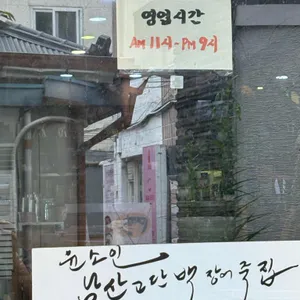 영업시간
AM 11시-PM 9시
윤소인
남산 고단백 장어 죽집